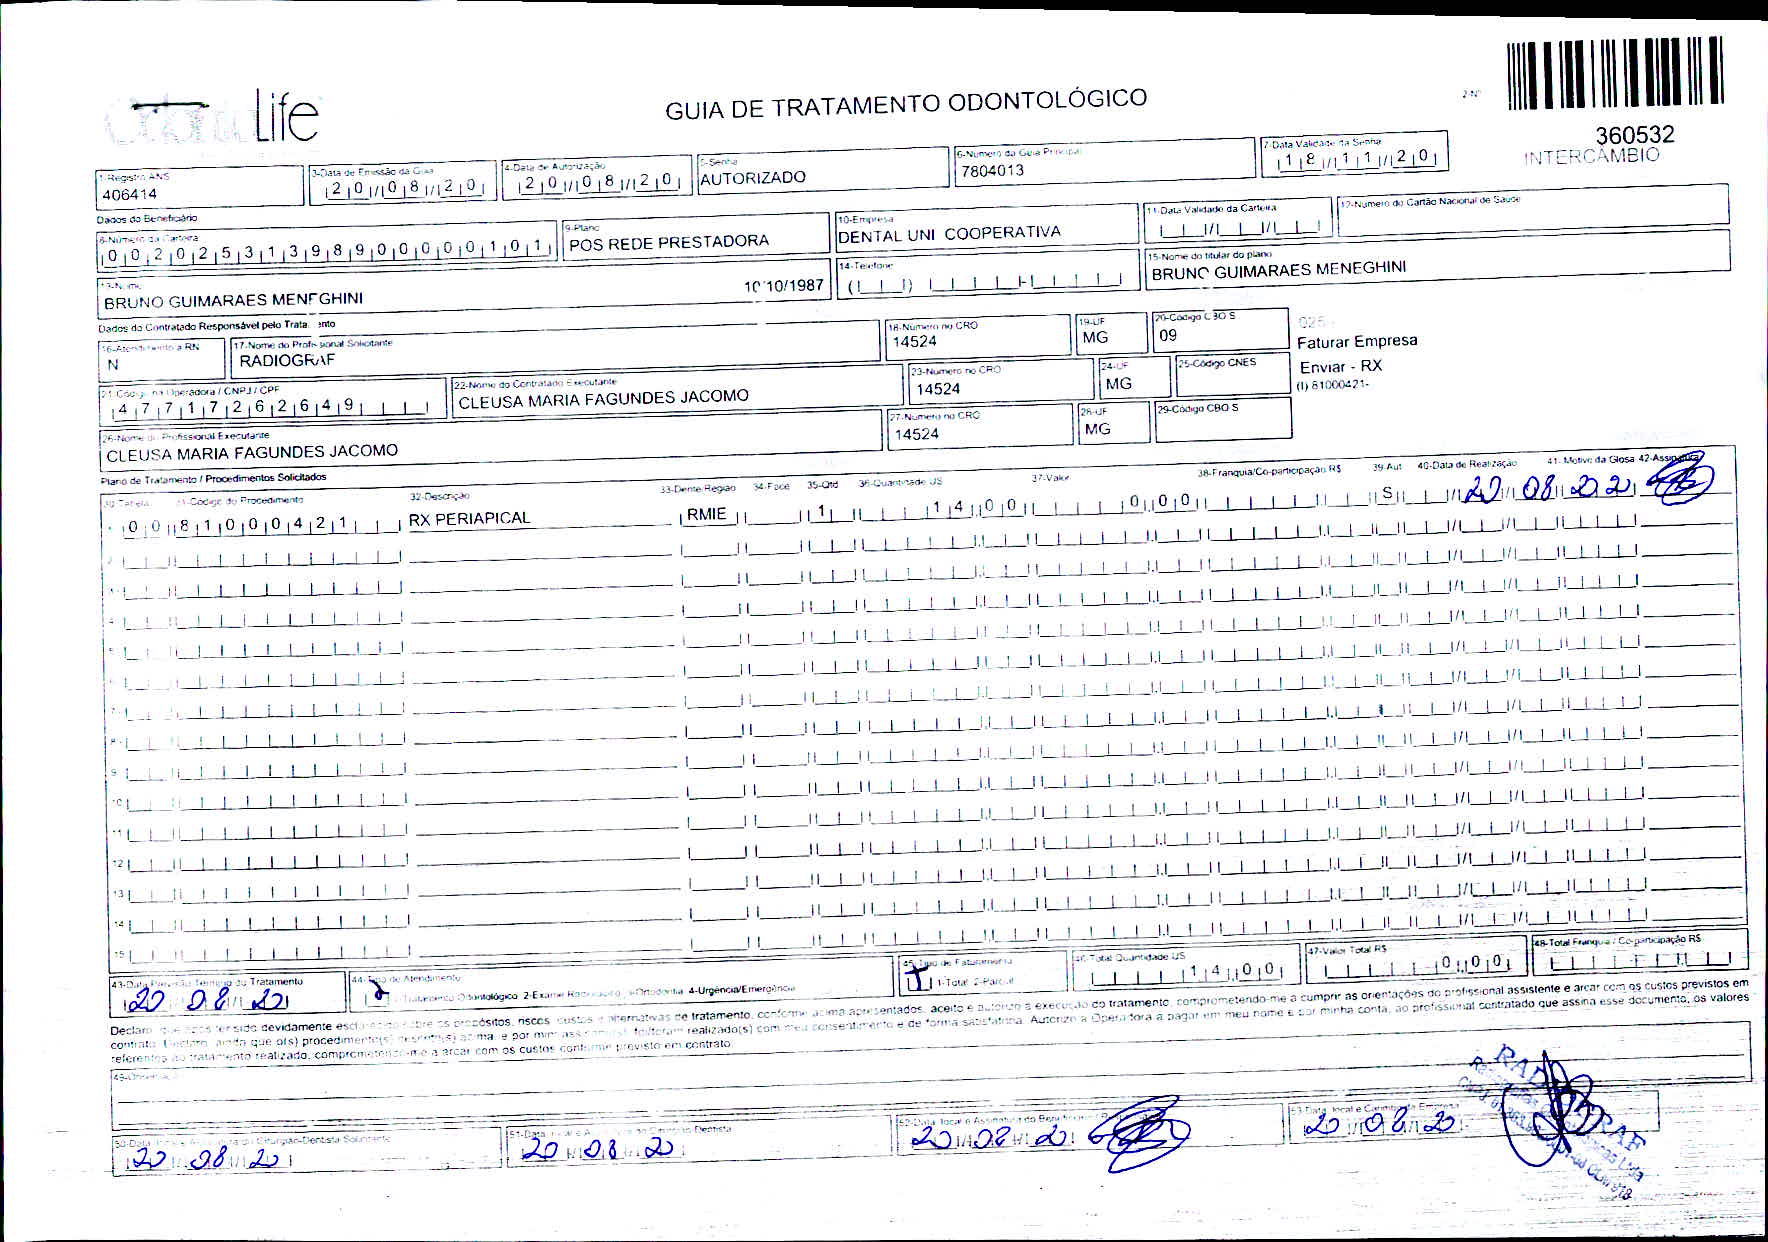 Life
GUIA DE TRATAMENTO ODONTOLÓGICO
2-Nº
360532
INTERCAMBIO
1-Registro ANS
406414
3-Data de Emissão da Guia
20/08/20
4-Data de Autorização
20/08/20
5-Senha
AUTORIZADO
6-Numero da Guia Principal
7804013
7-Data Validade da Senha
18/11/20
Dados do Beneficiário
8-Número da Carteira
00202531398900000101
9-Plano
POS REDE PRESTADORA
10-Empresa
DENTAL UNI COOPERATIVA
11-Data Validade da Carteira
12-Numero do Cartão Nacional de Saude
13-Nome
BRUNO GUIMARAES MENEGHINI
10/10/1987
14-Telefone
15-Nome do titular do plano
BRUNO GUIMARAES MENEGHINI
Dados do Contratado Responsável pelo Tratamento
16-Atendimento a RN
N
17-Nome do Profissional Solicitante
RADIOGRAF
18-Numero no CRO
14524
19-UF
MG
20-Código CBO S
09
Faturar Empresa
Enviar - RX
(I) 81000421-
21-Código na Operadora / CNPJ / CPF
47717262649
22-Nome do Contratado Executante
CLEUSA MARIA FAGUNDES JACOMO
23-Numero no CRO
14524
24-UF
MG
25-Código CNES
26-Nome do Profissional Executante
CLEUSA MARIA FAGUNDES JACOMO
27-Numero no CRO
14524
28-UF
MG
29-Código CBO S
Plano de Tratamento / Procedimentos Solicitados
30-Tabela 31-Código do Procedimento 32-Descrição 33-Dente/Região 34-Face 35-Qtd 36-Quantidade US 37-Valor 38-Franquia/Co-participação R$ 39-Aut 40-Data de Realização 41-Motivo da Glosa 42-Assinatura
00 81000421 RX PERIAPICAL RMIE 1 14,00 0,00 S 20/08/20
2
3
4
5
6
7
8
9
10
11
12
13
14
15
43-Data Previsão Término do Tratamento
20/08/20
44-Tipo de Atendimento
1-Tratamento Odontológico 2-Exame Radiológico 3-Ortodontia 4-Urgência/Emergência
45-Tipo de Faturamento
1-Total 2-Parcial
46-Total Quantidade US
14,00
47-Valor Total R$
0,00
48-Total Franquia / Co-participação R$
Declaro, que após ter sido devidamente esclarecido sobre os propósitos, riscos, custos e alternativas de tratamento, conforme acima apresentados, aceito e autorizo a execução do tratamento, comprometendo-me a cumprir as orientações do profissional assistente e arcar com os custos previstos em
contrato. Declaro, ainda que o(s) procedimento(s) descrito(s) acima, e por mim assinado(s), foi/foram realizado(s) com meu consentimento e de forma satisfatória. Autorizo a Operadora a pagar em meu nome e por minha conta, ao profissional contratado que assina esse documento, os valores
referentes ao tratamento realizado, comprometendo-me a arcar com os custos conforme previsto em contrato.
50-Data, local e Assinatura do Cirurgião-Dentista Solicitante
20/08/20
20/08/20
20/08/20
53-Data, local e Carimbo da Empresa
20/08/20